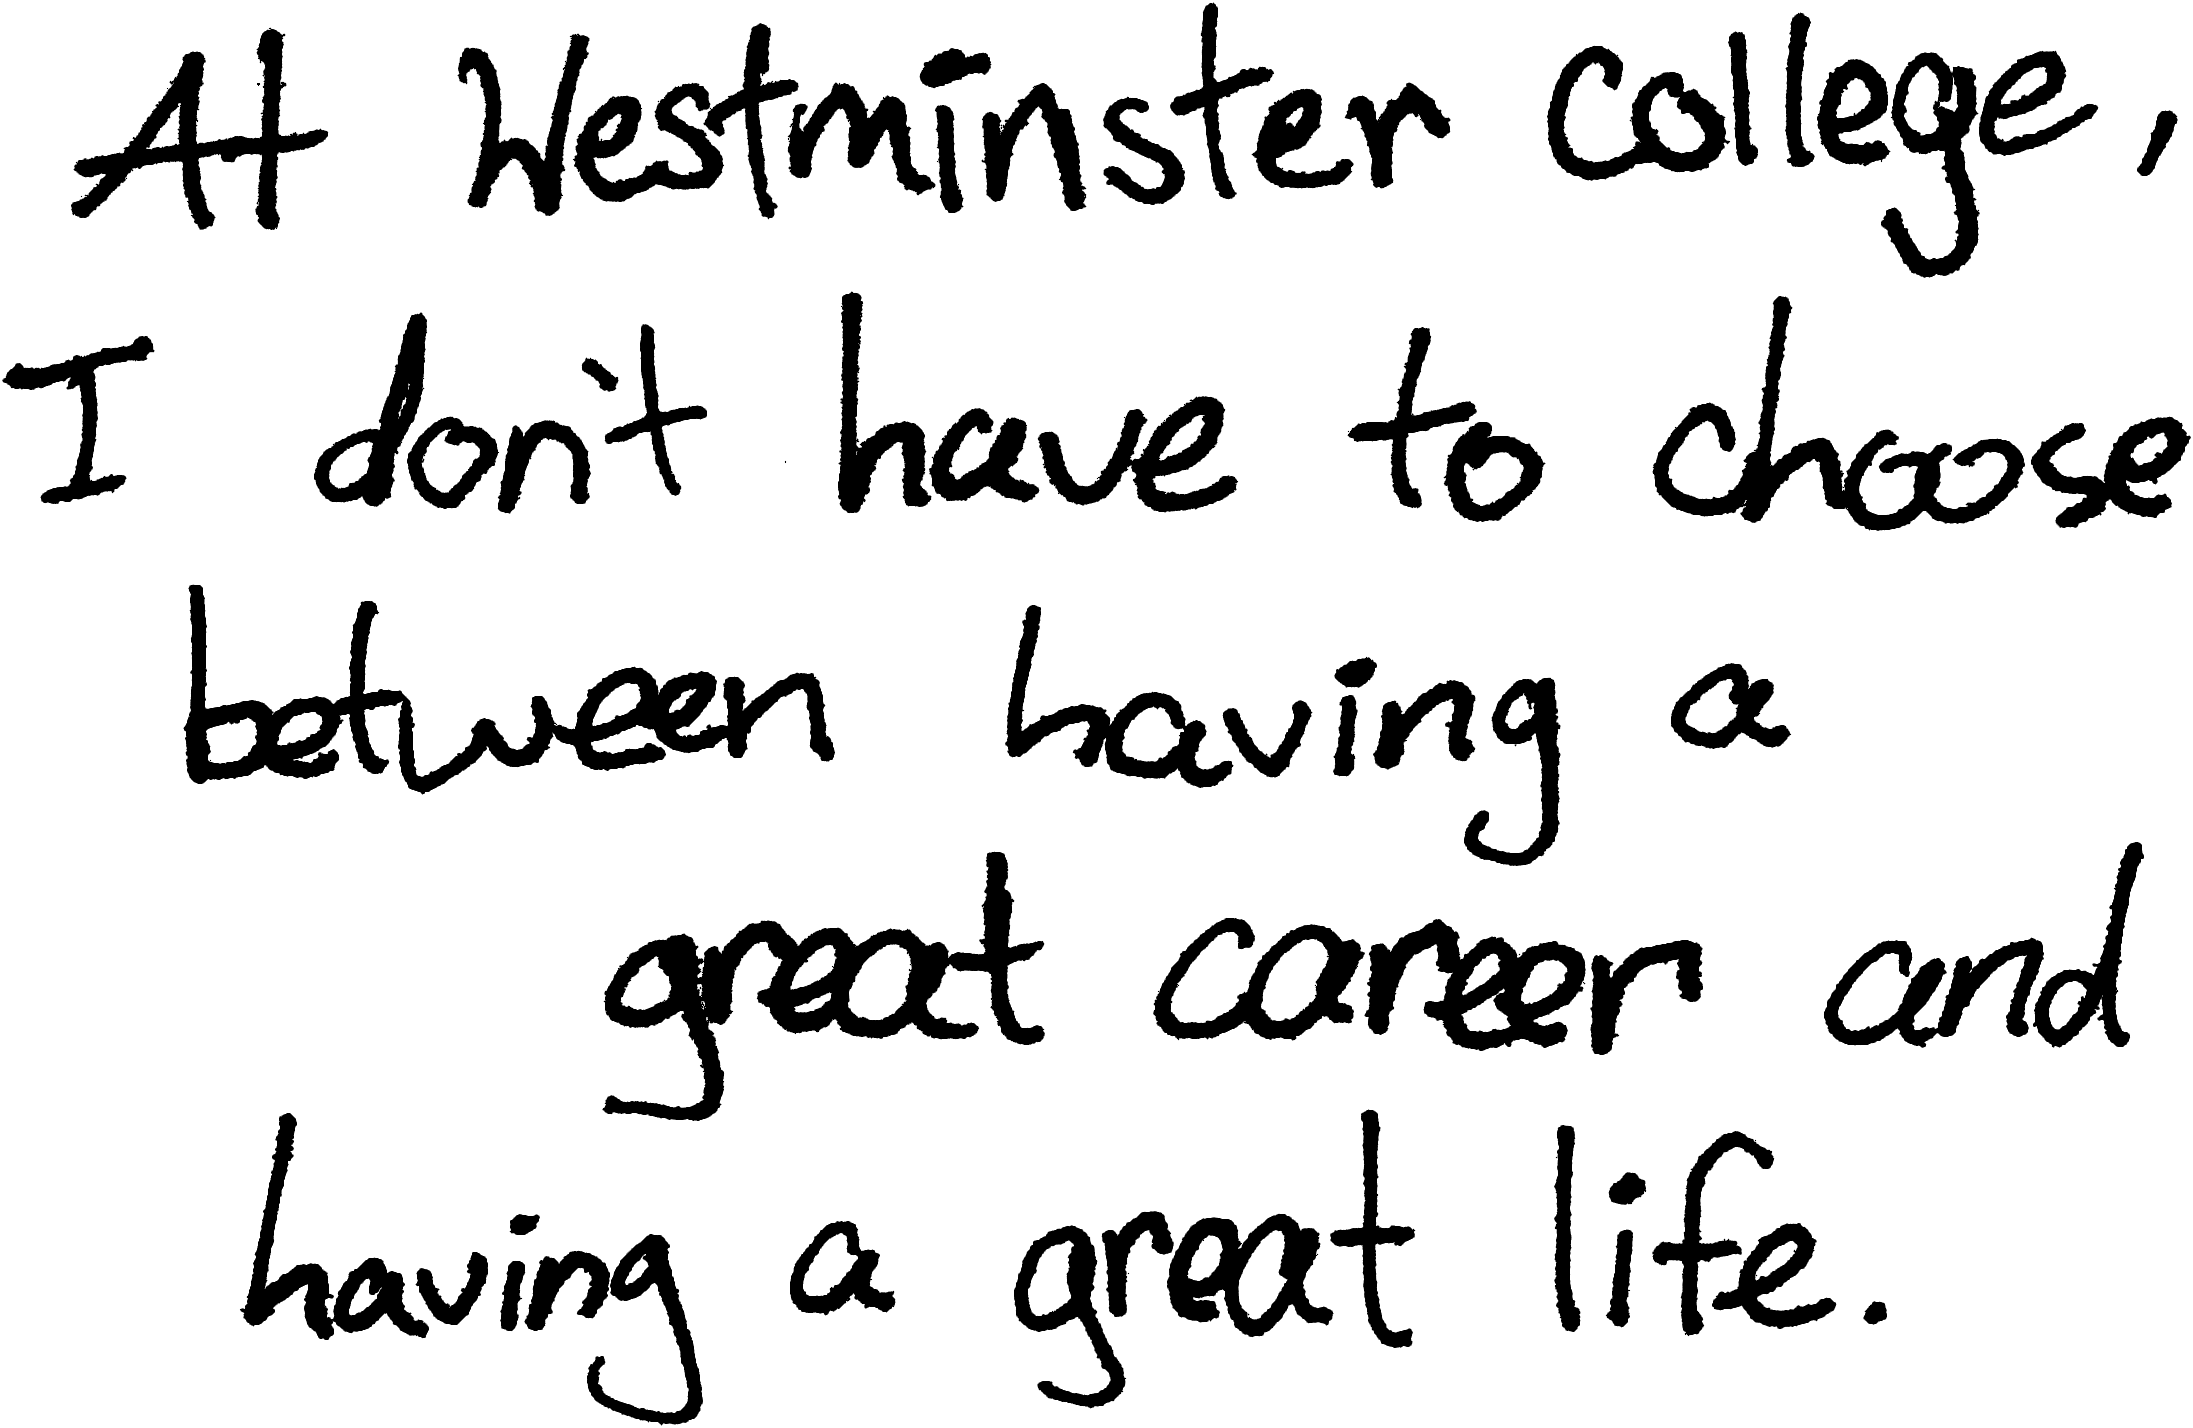 At Westminster College,
I don't have to choose
between having a
great career and
having a great life.